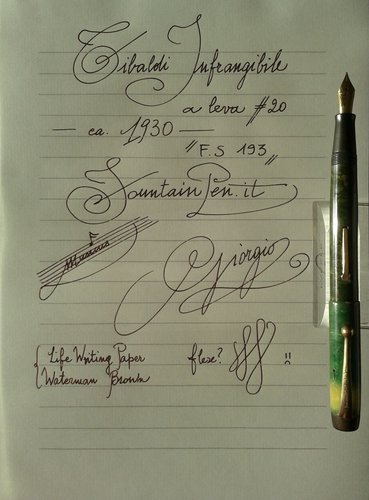 Tibaldi Infrangibile
a leva #20
— ca. 1930 —
"F.S 193"
FountainPen.it
Musicus
Giorgio
Life Writing Paper
Waterman Brown
flex?
!!